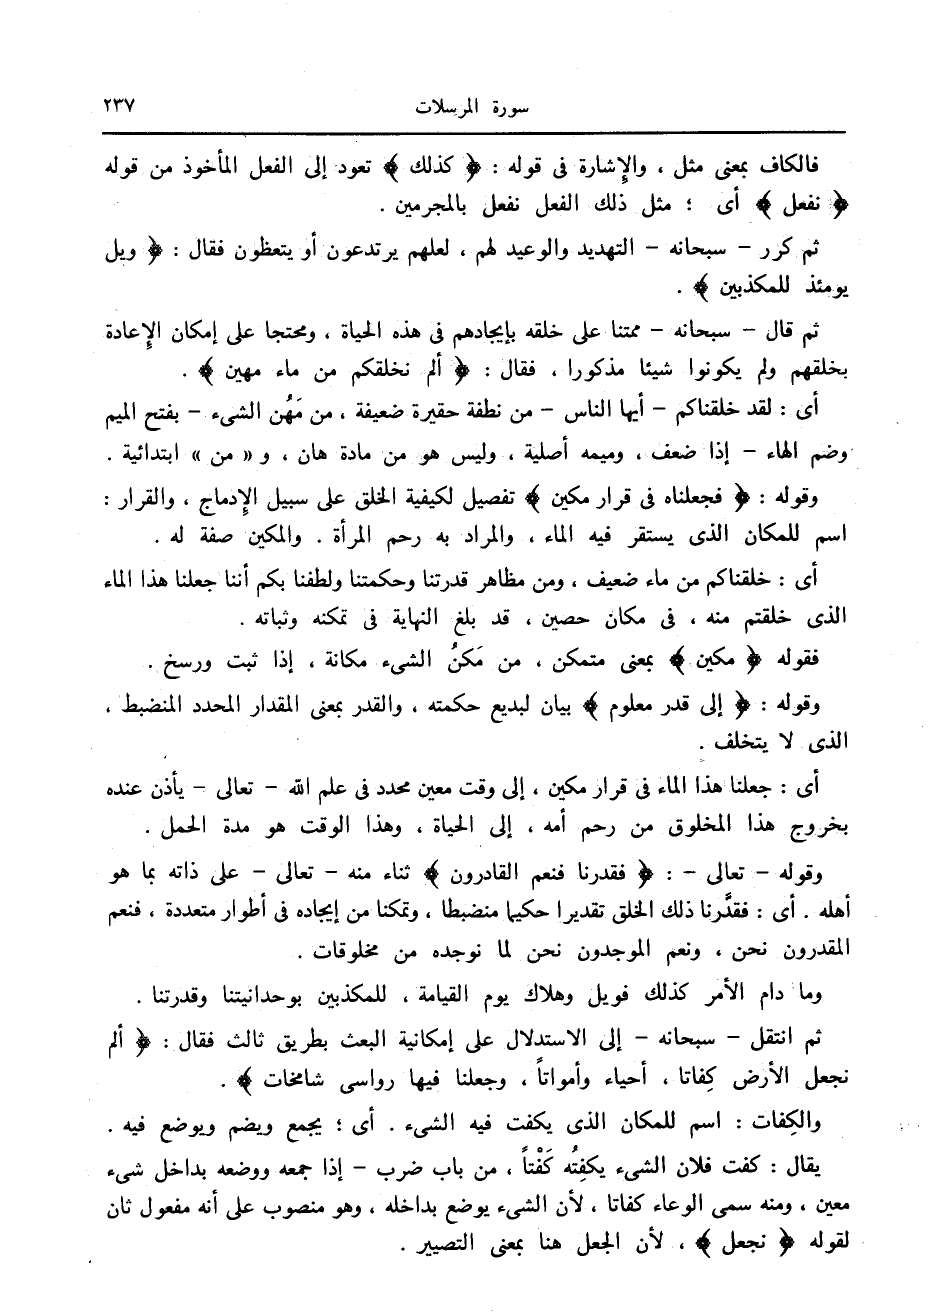 سورة المرسلات ٢٣٧
فالكاف بمعنى مثل ، والإشارة فى قوله : ﴿ كذلك ﴾ تعود إلى الفعل المأخوذ من قوله
﴿ نفعل ﴾ أى ؛ مثل ذلك الفعل نفعل بالمجرمين .
ثم كرر – سبحانه – التهديد والوعيد لهم ، لعلهم يرتدعون أو يتعظون فقال : ﴿ ويل
يومئذ للمكذبين ﴾ .
ثم قال – سبحانه – ممتنا على خلقه بإيجادهم فى هذه الحياة ، ومحتجا على إمكان الإعادة
بخلقهم ولم يكونوا شيئا مذكورا ، فقال : ﴿ ألم نخلقكم من ماء مهين ﴾ .
أى : لقد خلقناكم – أيها الناس – من نطفة حقيرة ضعيفة ، من مَهُن الشىء – بفتح الميم
وضم الهاء – إذا ضعف ، وميمه أصلية ، وليس هو من مادة هان ، و « من » ابتدائية .
وقوله : ﴿ فجعلناه فى قرار مكين ﴾ تفصيل لكيفية الخلق على سبيل الإدماج ، والقرار :
اسم للمكان الذى يستقر فيه الماء ، والمراد به رحم المرأة . والمكين صفة له .
أى : خلقناكم من ماء ضعيف ، ومن مظاهر قدرتنا وحكمتنا ولطفنا بكم أننا جعلنا هذا الماء
الذى خلقتم منه ، فى مكان حصين ، قد بلغ النهاية فى تمكنه وثباته .
فقوله ﴿ مكين ﴾ بمعنى متمكن ، من مَكنُ الشىء مكانة ، إذا ثبت ورسخ .
وقوله : ﴿ إلى قدر معلوم ﴾ بيان لبديع حكمته ، والقدر بمعنى المقدار المحدد المنضبط ،
الذى لا يتخلف .
أى : جعلنا هذا الماء فى قرار مكين ، إلى وقت معين محدد فى علم الله – تعالى – يأذن عنده
بخروج هذا المخلوق من رحم أمه ، إلى الحياة ، وهذا الوقت هو مدة الحمل .
وقوله – تعالى – : ﴿ فقدرنا فنعم القادرون ﴾ ثناء منه – تعالى – على ذاته بما هو
أهله . أى : فقدَّرنا ذلك الخلق تقديرا حكيما منضبطا ، وتمكنا من إيجاده فى أطوار متعددة ، فنعم
المقدرون نحن ، ونعم الموجدون نحن لما نوجده من مخلوقات .
وما دام الأمر كذلك فويل وهلاك يوم القيامة ، للمكذبين بوحدانيتنا وقدرتنا .
ثم انتقل – سبحانه – إلى الاستدلال على إمكانية البعث بطريق ثالث فقال : ﴿ ألم
نجعل الأرض كِفاتا ، أحياء وأمواتاً ، وجعلنا فيها رواسى شامخات ﴾ .
والكِفات : اسم للمكان الذى يكفت فيه الشىء . أى ؛ يجمع ويضم ويوضع فيه .
يقال : كفت فلان الشىء يكفِتُه كَفْتاً ، من باب ضرب – إذا جمعه ووضعه بداخل شىء
معين ، ومنه سمى الوعاء كفاتا ، لأن الشىء يوضع بداخله ، وهو منصوب على أنه مفعول ثان
لقوله ﴿ نجعل ﴾ ، لأن الجعل هنا بمعنى التصيير .